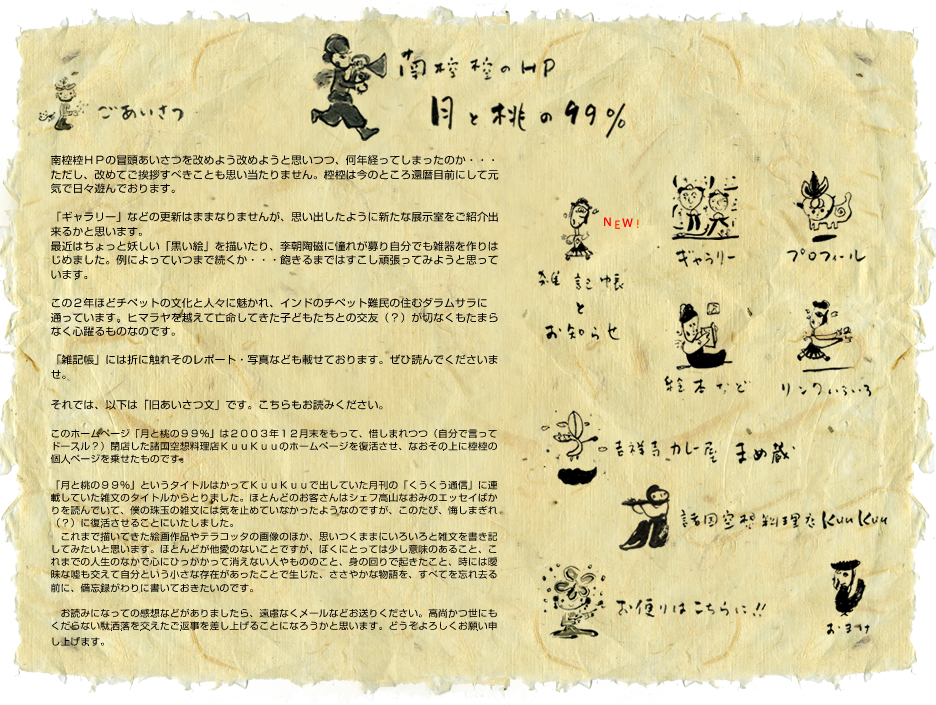 南椌椌のHP
月と桃の99%
ごあいさつ
南椌椌ＨＰの冒頭あいさつを改めよう改めようと思いつつ、何年経ってしまったのか・・・
ただし、改めてご挨拶すべきことも思い当たりません。椌椌は今のところ還暦目前にして元
気で日々遊んでおります。
「ギャラリー」などの更新はままなりませんが、思い出したように新たな展示室をご紹介出
来るかと思います。
最近はちょっと妖しい「黒い絵」を描いたり、李朝陶磁に憧れが募り自分でも雑器を作りは
じめました。例によっていつまで続くか・・・飽きるまではすこし頑張ってみようと思って
います。
この２年ほどチベットの文化と人々に魅かれ、インドのチベット難民の住むダラムサラに
通っています。ヒマラヤを越えて亡命してきた子どもたちとの交友（？）が切なくもたまら
なく心躍るものなのです。
「雑記帳」には折に触れそのレポート・写真なども載せております。ぜひ読んでくださいま
せ。
それでは、以下は「旧あいさつ文」です。こちらもお読みください。
このホームページ「月と桃の９９％」は２００３年１２月末をもって、惜しまれつつ（自分で言って
ドースル？）閉店した諸国空想料理店ＫｕｕＫｕｕのホームページを復活させ、なおその上に椌椌の
個人ページを乗せたものです。
「月と桃の９９％」というタイトルはかってＫｕｕＫｕｕで出していた月刊の「くうくう通信」に連
載していた雑文のタイトルからとりました。ほとんどのお客さんはシェフ高山なおみのエッセイばか
りを読んでいて、僕の珠玉の雑文には気を止めていなかったようなのですが、このたび、悔しまぎれ
（？）に復活させることにいたしました。
　これまで描いてきた絵画作品やテラコッタの画像のほか、思いつくままにいろいろと雑文を書き記
してみたいと思います。ほとんどが他愛のないことですが、ぼくにとっては少し意味のあること、こ
れまでの人生のなかで心にひっかかって消えない人やもののこと、身の回りで起きたこと、時には曖
昧な嘘も交えて自分という小さな存在があったことで生じた、ささやかな物語を、すべてを忘れ去る
前に、備忘録がわりに書いておきたいのです。
　お読みになっての感想などがありましたら、遠慮なくメールなどお送りください。高尚かつ世にも
くだらない駄洒落を交えたご返事を差し上げることになろうかと思います。どうぞよろしくお願い申
し上げます。
NEW!
雑記帳
と
お知らせ
ギャラリー
プロフィール
絵本など
リンクいろいろ
吉祥寺カレー屋 まめ蔵
諸国空想料理店KuuKuu
お便りはこちらに!!
おまけ